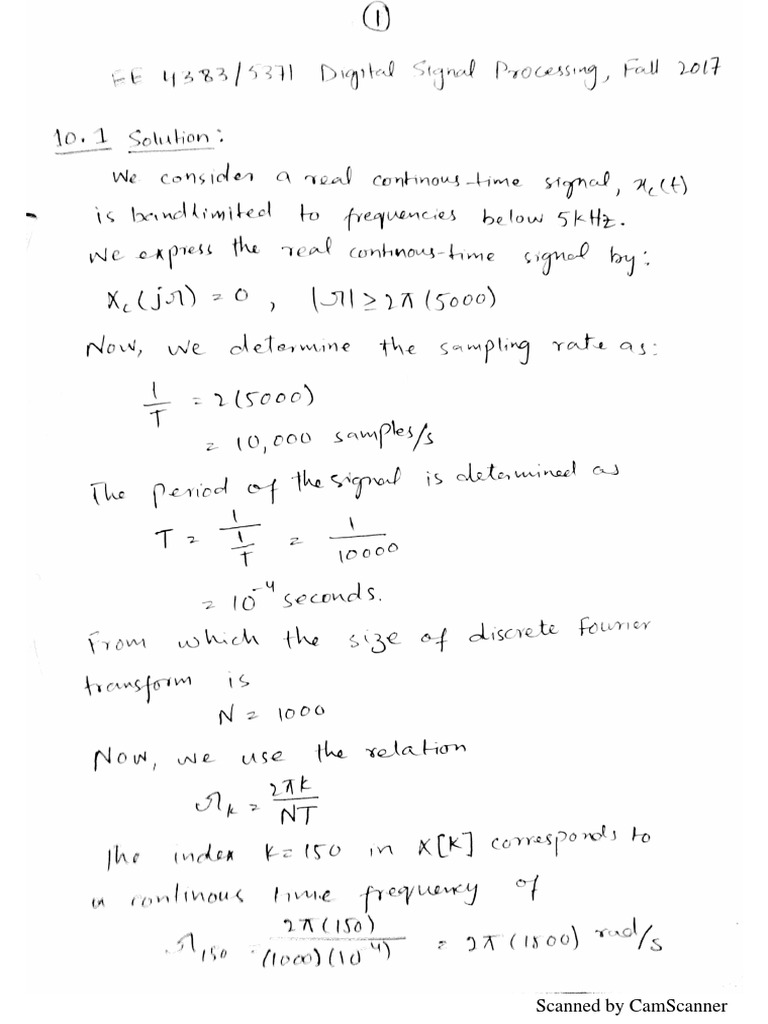 ①
EE 4383/5371 Digital Signal Processing, Fall 2017
10.1 Solution:
We consider a real continous-time signal, x_c(t)
is bandlimited to frequencies below 5kHz.
We express the real continous-time signal by:
X_c(jΩ) = 0 , |Ω| ≥ 2π(5000)
Now, we determine the sampling rate as:
1/T = 2(5000)
= 10,000 samples/s
The period of the signal is determined as
T = 1/(1/T) = 1/10000
= 10^-4 seconds.
From which the size of discrete Fourier
transform is
N = 1000
Now, we use the relation
Ω_k = 2πk/NT
The index k=150 in X[K] corresponds to
a continous time frequency of
Ω_150 2π(150)/(1000)(10^-4) = 2π(1500) rad/s
Scanned by CamScanner